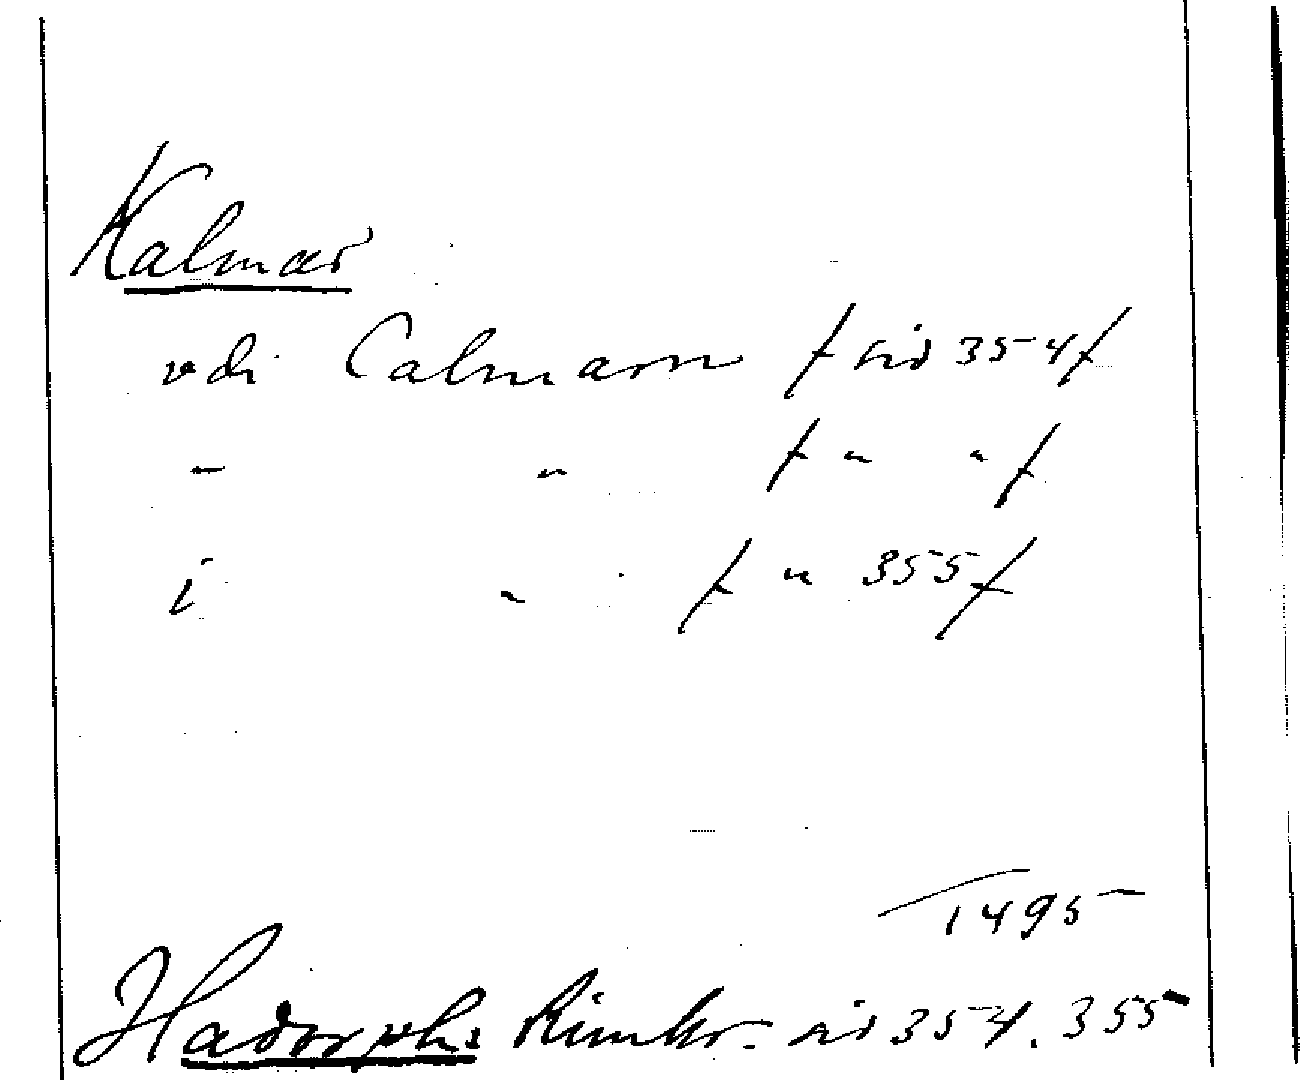 Kalmar
vdi Calmarn / sid 354 /
" " / " " /
i " / " 355 /
1495
Hadorphs Rimkr. sid 354. 355